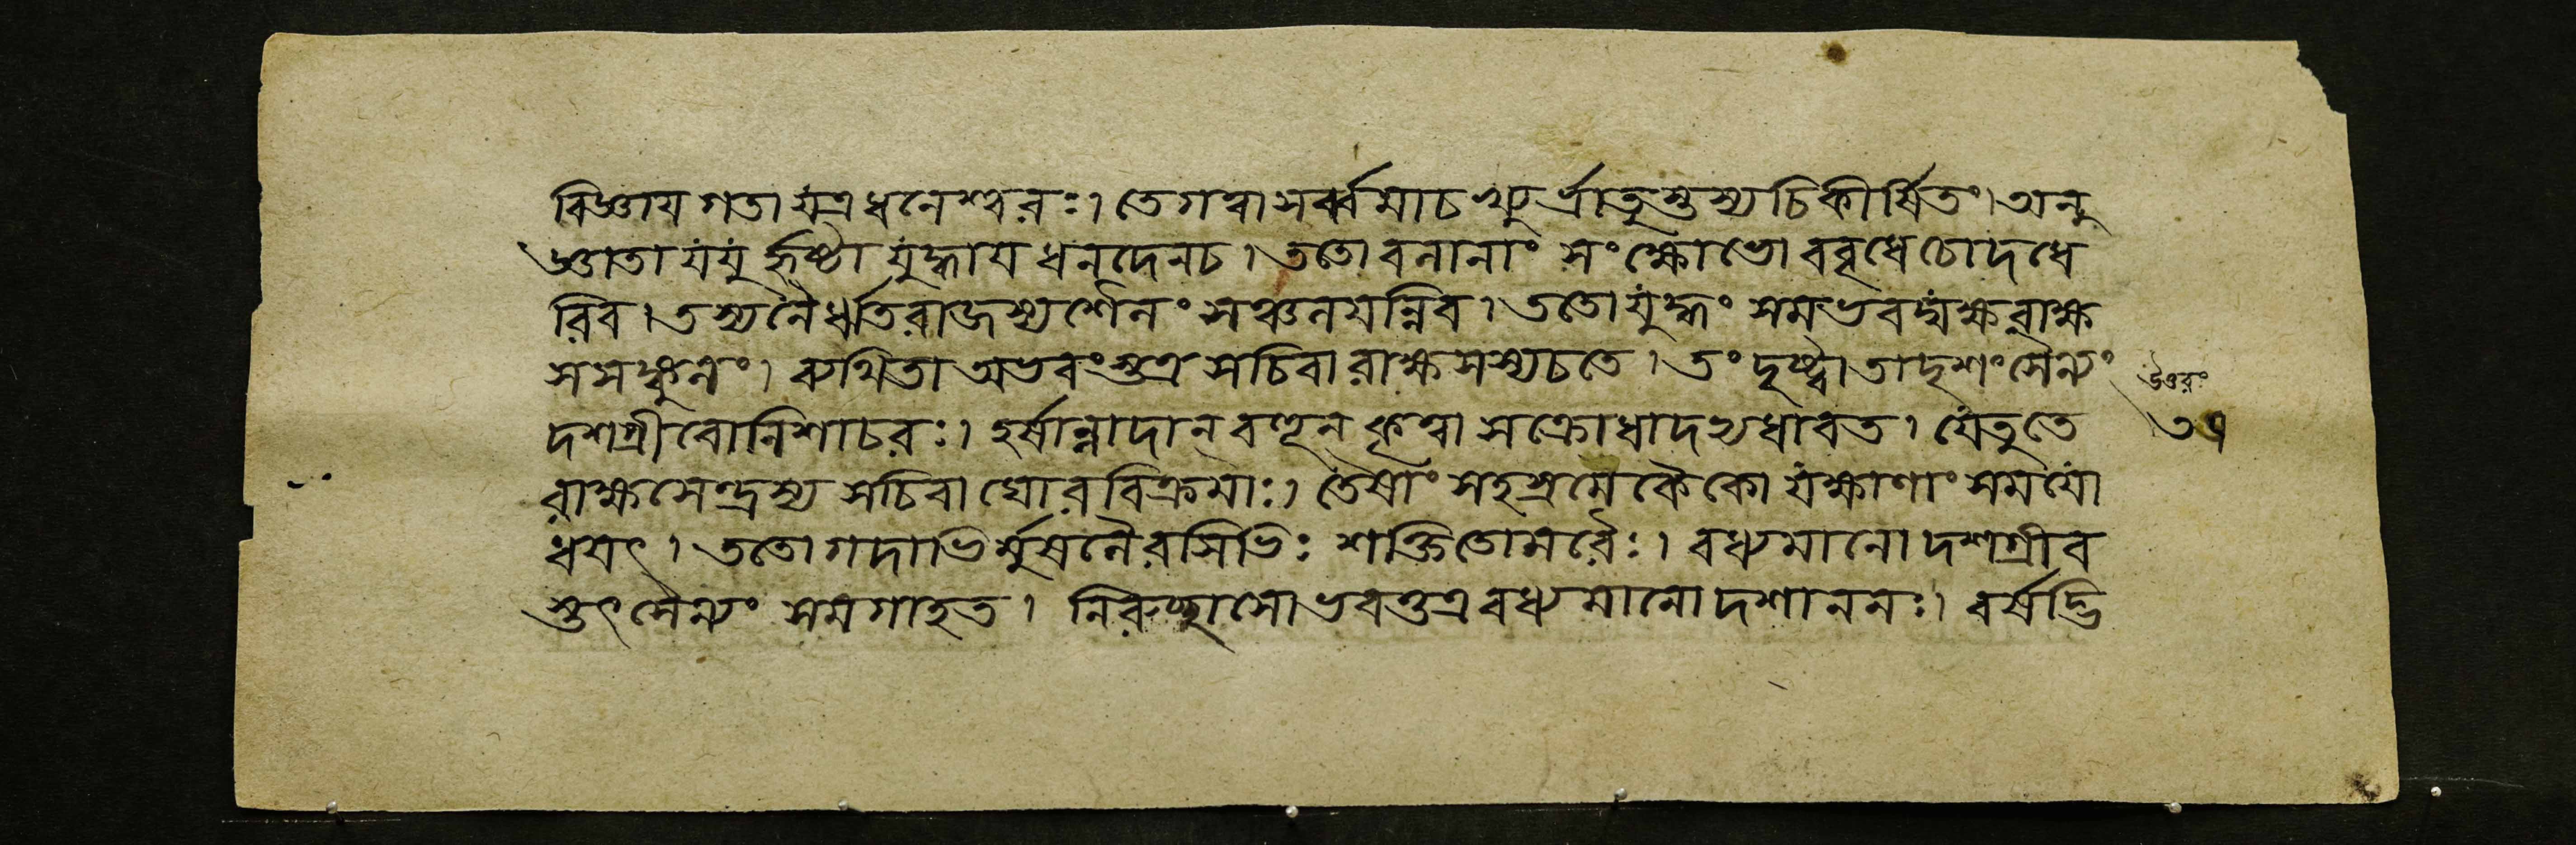 বিজ্ঞায গতা যত্র ধনেশ্বরঃ। তে গত্বা সর্ব্বমাচখ্যুর্ভ্রাতুস্তস্য চিকীর্ষিতং। অনু
জ্ঞাতা যযুর্হৃষ্টা যুদ্ধায ধনদেনচ। ততো বনানাং সংক্ষোভো ববৃধে চোদধে
রিব। তস্য নৈরৃতরাজস্য শৈলং সঞ্চলযন্নিব। ততো যুদ্ধং সমভবদ্যক্ষরাক্ষ
সসঙ্কুলং। ব্যথিতা অভবংস্তত্র সচিবা রাক্ষসস্যচতে। তং দৃষ্ট্বা তাদৃশং সৈন্যং
দশগ্রীবোনিশাচরঃ। হর্ষান্নাদান্ বহূন্ কৃত্বা সক্রোধাদভ্যধাবত। যেতুতে
রাক্ষসেন্দ্রস্য সচিবা ঘোরবিক্রমাঃ। তেষাং সহস্রমেকৈকো যক্ষাণাং সমযো
ধযৎ। ততো গদাভির্মুসলৈরসিভিঃ শক্তিতোমরৈঃ। বধ্যমানো দশগ্রীব
স্তৎ সৈন্যং সমগাহত। নিরুচ্ছ্বাসো ভবত্তত্র বধ্যমানো দশাননঃ। বর্ষদ্ভি
উত্তরং
৩৭